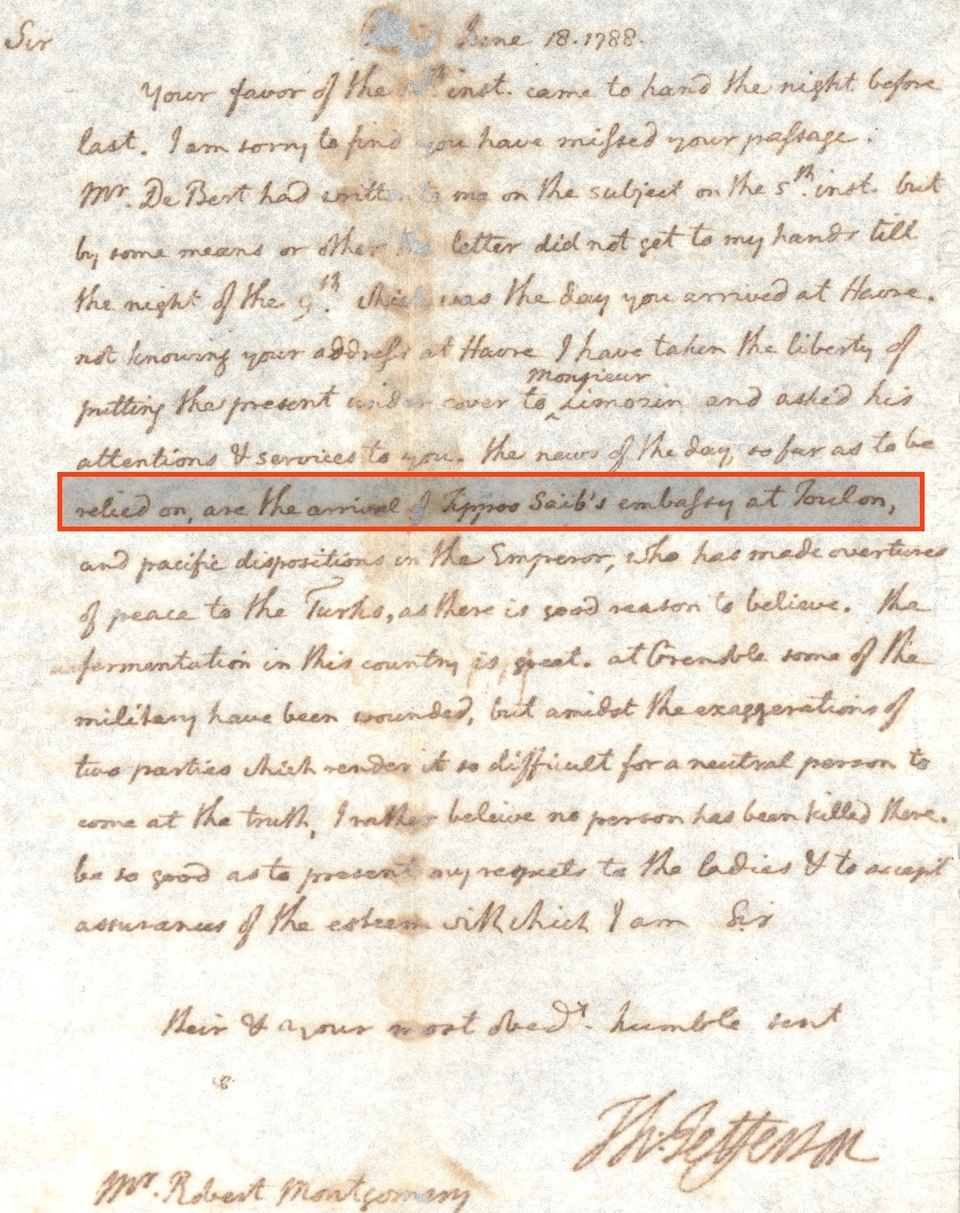 Sir
June 18. 1788.
Your favor of the inst. came to hand the night before
last. I am sorry to find you have missed your passage.
Mr. De Bert had written to me on the subject on the 5th. inst. but
by some means or other the letter did not get to my hands till
the night of the 9th. which was the day you arrived at Havre.
not knowing your address at Havre I have taken the liberty of
Monsieur
putting the present under cover to ‸ Limozin and asked his
attentions & services to you. the news of the day, so far as to be
relied on, are the arrival of Tippoo Saib's embassy at Toulon,
and pacific dispositions in the Emperor, who has made overtures
of peace to the Turks, as there is good reason to believe. the
fermentation in this country is great. at Grenoble some of the
military have been wounded, but amidst the exaggerations of
two parties which render it so difficult for a neutral person to
come at the truth, I rather beleive no person has been killed there.
be so good as to present my respects to the ladies & to accept
assurances of the esteem with which I am Sir
their & your most obedt. humble servt
Th: Jefferson
Mr. Robert Montgomery